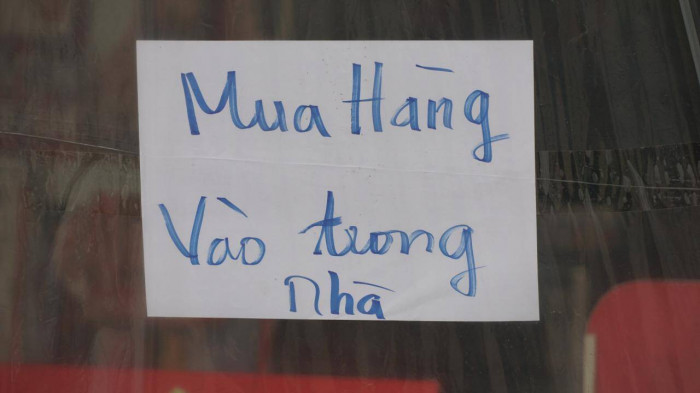 Mua Hàng
Vào trong
nhà